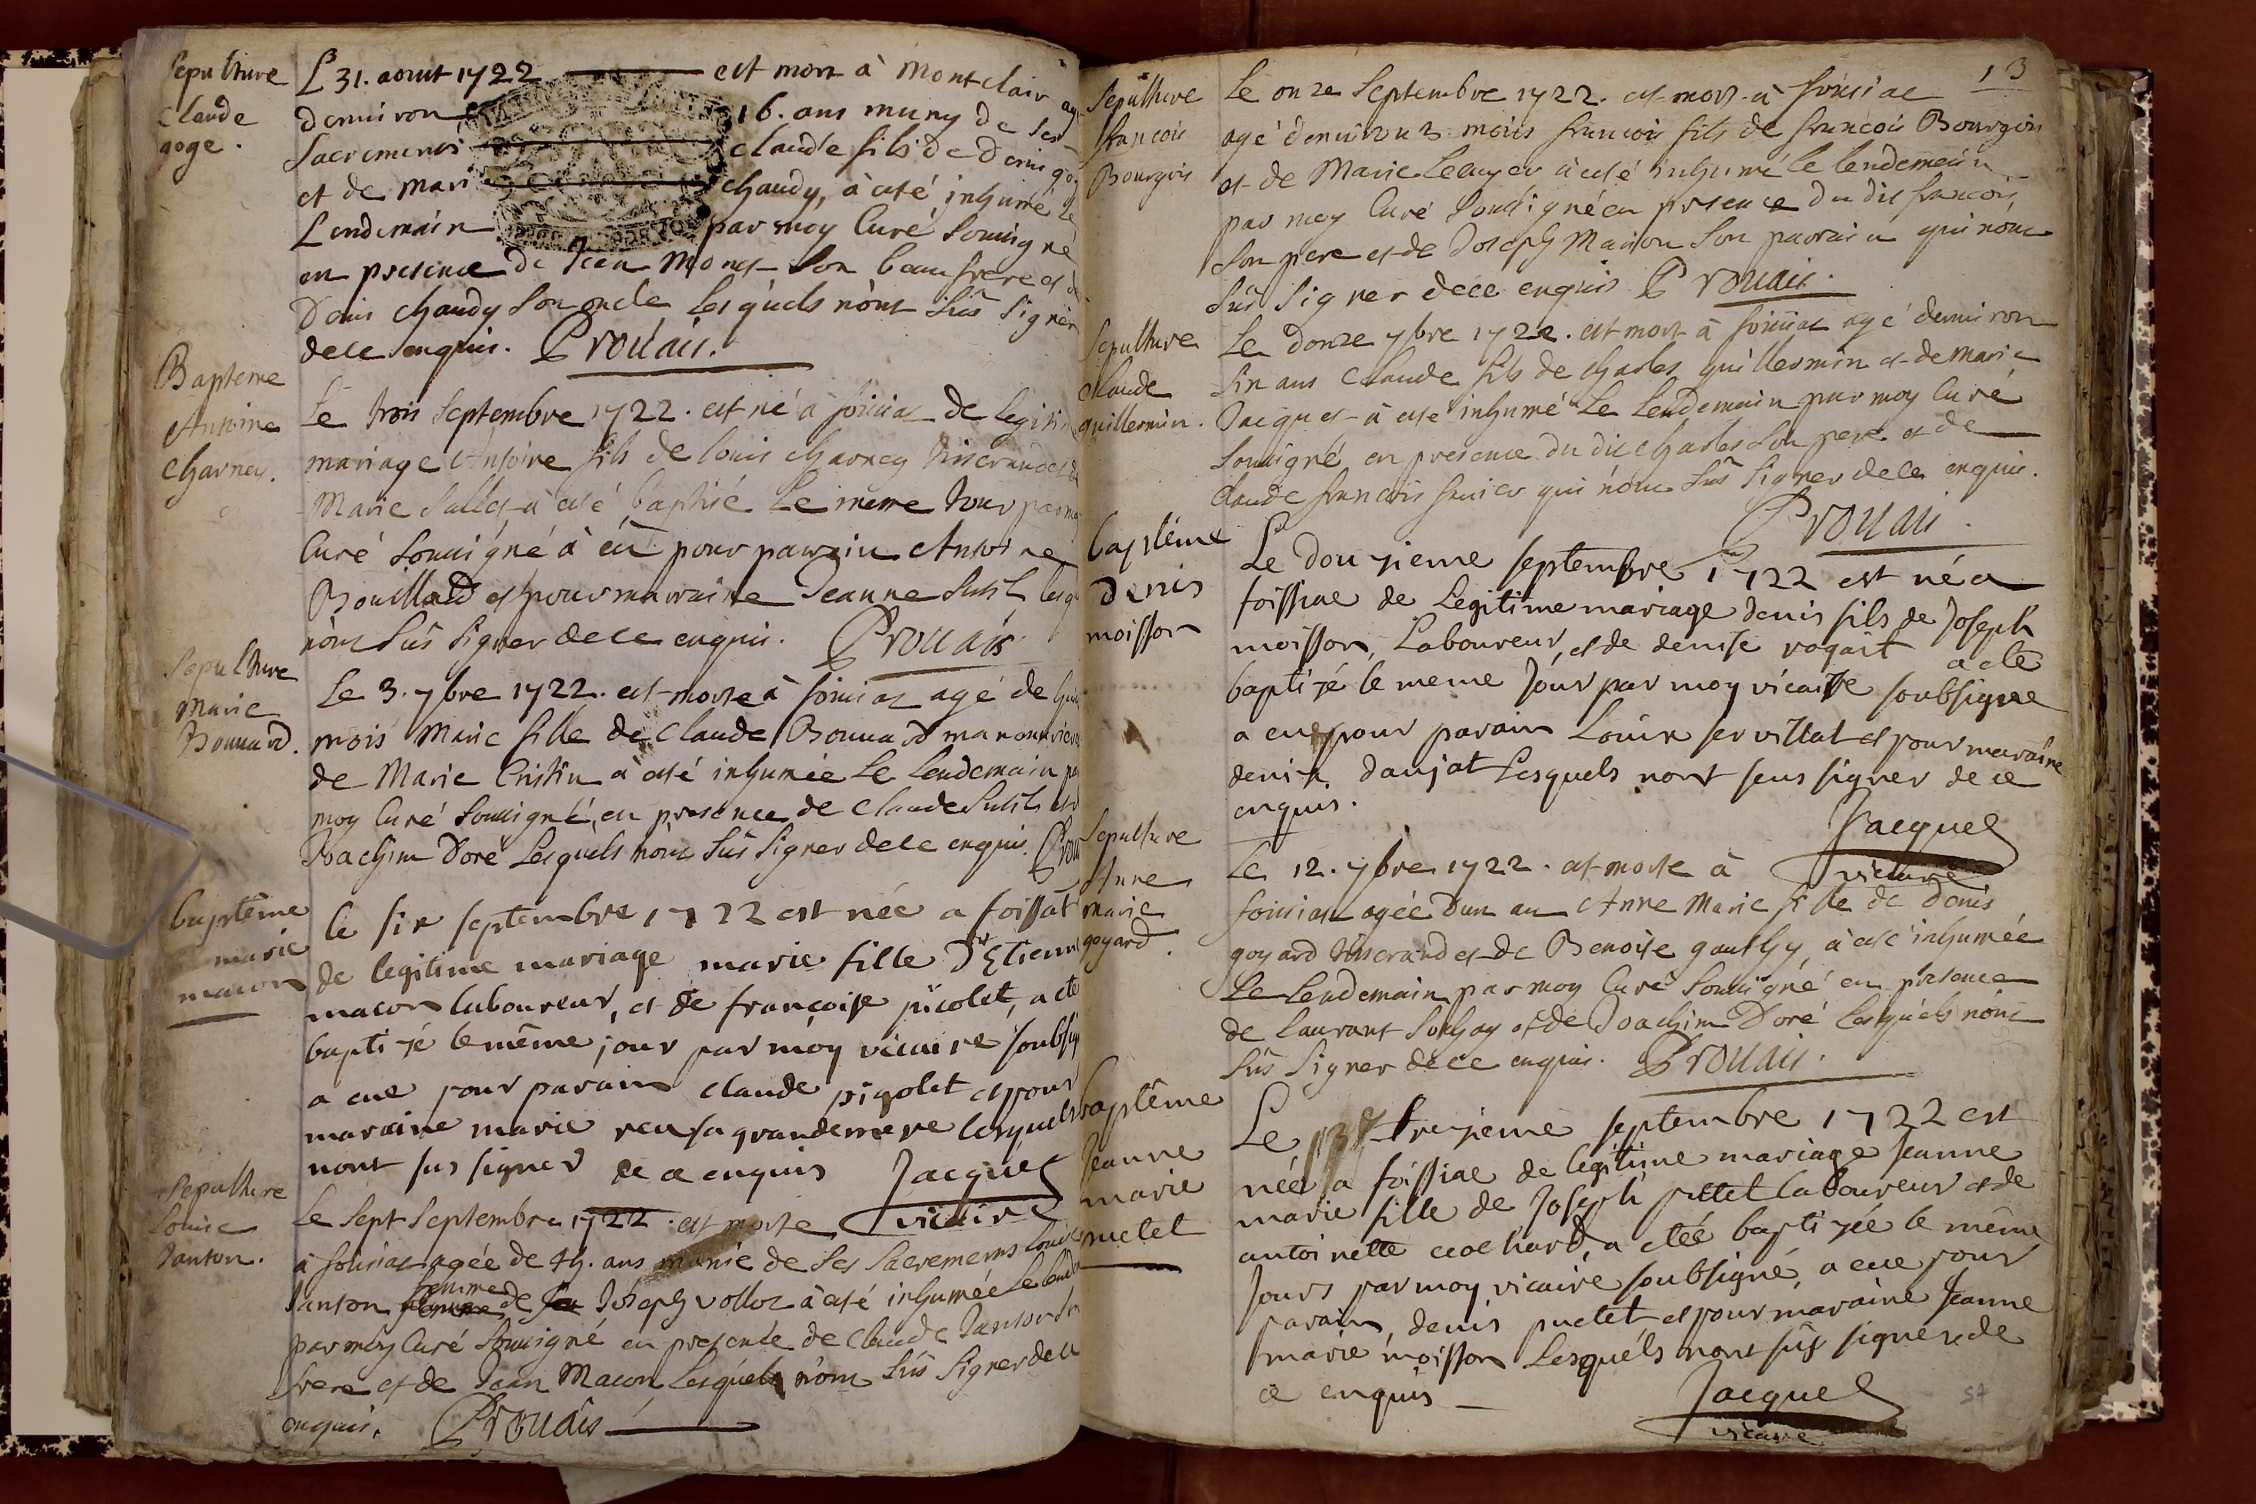 Sepulture
Claude
goge.
L 31. aout 1722 est mort à Montclair
denviron 16. ans muny de ses
Sacremens claude fils de Denis
et de Mari chaudy, à esté inhumé le
Lendemain par moy Curé Sousigné
en presence de Jean Monet Son beau frere et de
Denis chaudy Son oncle Lesquels nònt sùs Signer
dece enquis. Prouais.
Bapteme
Antoine
Charney.
Le trois Septembre 1722. est né à foissiac de Legitim
mariage Antoine fils de louis charney tisserand et de
Marie Sallet à esté baptisé Le meme Jour par moy
Curé Sousigné à eû pour parrain Antoine
Bouillard et pour marraine Jeanne Sutil
nònt Sûs Signer dece enquis. Prouais
Sepulture
Marie
Bonnard.
Le 3. 7bre 1722. est morte à foissiac agé de
mois Marie fille de Claude Bonnard manouvrier
de Marie Cristin a esté inhumée Le Lendemain
moy Curé Sousigné, en presence de Claude Sutil et
Joachim Doré Lesquels nònt Sûs Signer dece enquis.
baptême
marie
macon
le six septembre 1722 est née a foissiat
de legitime mariage marie fille d'Etienn
macon laboureur, et de françoise picolet, a eté
baptizé le même jour par moy vicaire soubsig
a eue pour parain claude pigolet et pour
maraine marie sa grandemere lesquels
nont sus signer de ce enquis Jacquet
vicaire
Sepulture
Louise
Janton.
Le Sept Septembre 1722. est morte
à foissiac agée de ans munie de Ses Sacremens Louise
Janton femme de Joseph volloz à esté inhumée
par moy Curé Sousigné en presence de Claude Janton
frere et de Jean Macon Lesquels nònt Sûs Signer de ce
enquis. Prouais
13
Sepulture
francois
Bourgois
Le onze Septembre 1722. est mort à foissiac
agé denviron mois francois fils de francois Bourgois
et de Marie à esté inhumé le lendemain
par moy Curé Sousigné en presence du dit francois
Son pere et de Joseph Marion Son parrain qui nònt
Sûs Signer dece enquis Prouais.
Sepulture
Claude
guillermin.
Le donze 7bre 1722. est mort à foissiac agé denviron
six ans Claude fils de Charles guillermin et de Marie
Jacquet à esté inhumé Le Lendemain par moy Curé
Sousigné en presence du dit Charles Son pere et de
Claude francois qui nònt Sûs Signer dece enquis.
Prouais.
baptême
Denis
moisson
Le douzieme septembre 1722 est né a
foissiac de Legitime mariage denis fils de Joseph
moisson, Laboureur, et de denise a eté
baptizé le meme Jour par moy vicaire soubsigné
a eu pour parain Louis servillat et pour maraine
denise danjat Lesquels nont seus signer de ce
enquis.
Jacquet
vicaire
Sepulture
Anne
Marie
goyard.
Le 12. 7bre 1722. est morte à
foissiac agée Dun an Anne Marie fille de Denis
goyard tisserand et de Benoise gauthy, à esté inhumée
Le Lendemain par moy Curé Sousigné en presence
de Laurant et de Joachim Doré Lesquels nònt
Sûs Signer dece enquis. Prouais.
baptême
Jeanne
marie
puetet
Le treizieme septembre 1722 est
née a foissiac de legitime mariage Jeanne
marie fille de Joseph puetet laboureur et de
antoinette cochard, a etée baptizée le même
Jours par moy vicaire soubsigné, a eue pour
parain, denis puetet et pour maraine Jeanne
marie moisson Lesquels nont sus signer de
ce enquis
Jacquet
vicaire